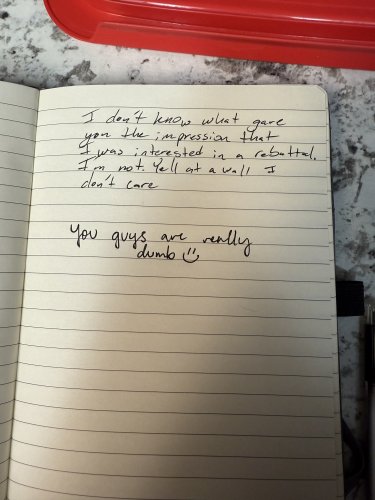 I don't know what gave
you the impression that
I was interested in a rebuttal.
I'm not. Yell at a wall I
don't care
You guys are really
dumb